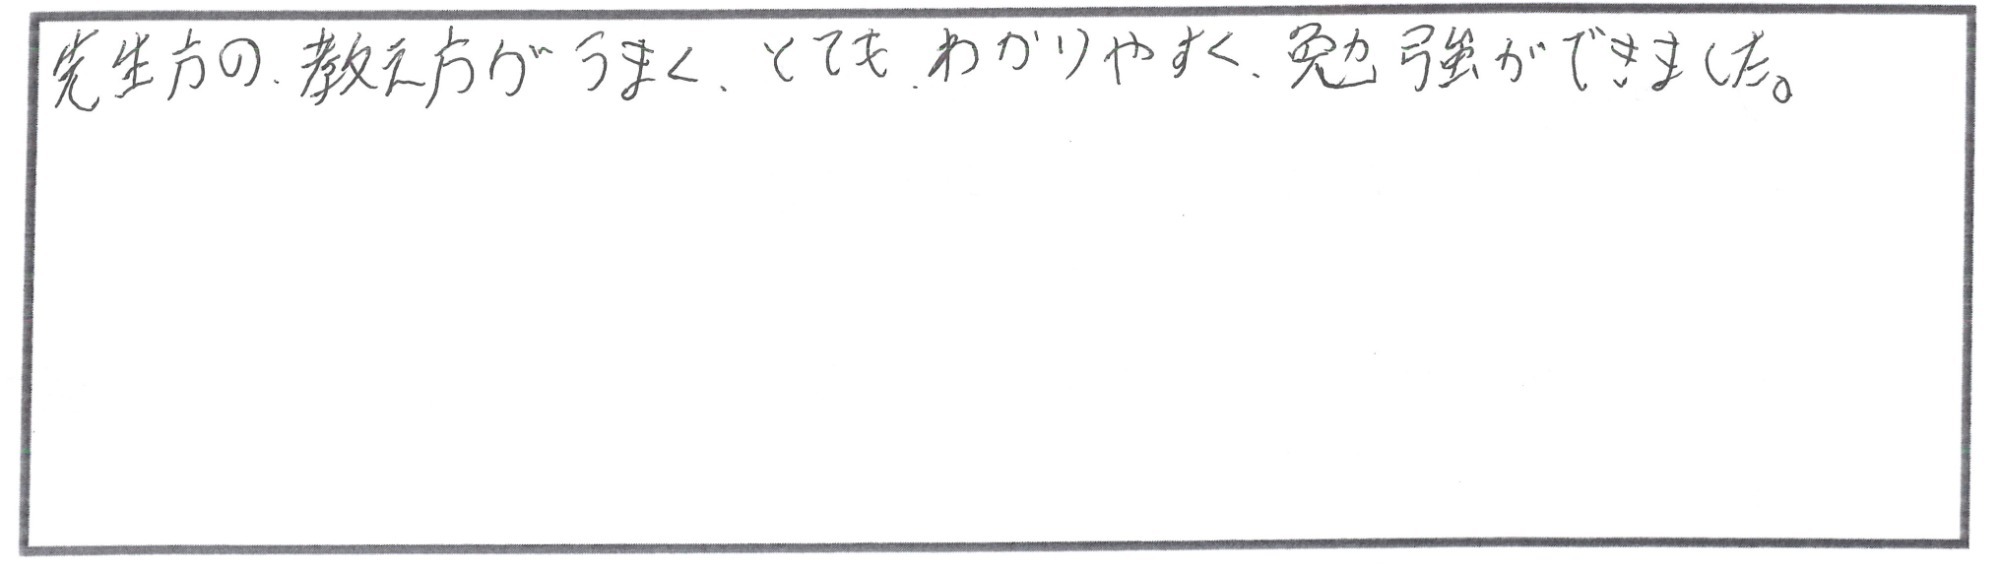 先生方の、教え方がうまく、とても、わかりやすく、勉強ができました。